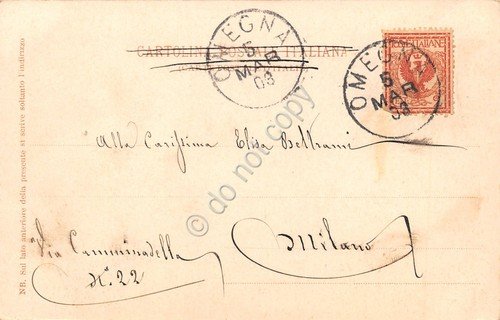 CARTOLINA POSTALE ITALIANA
OMEGNA
5
MAR
03
OMEGNA
5
MAR
03
Alla Carissima Elisa Beltrami
Milano
Via Camminadella
N.° 22
NB. Sul lato anteriore della presente si scrive soltanto l'indirizzo
do not copy